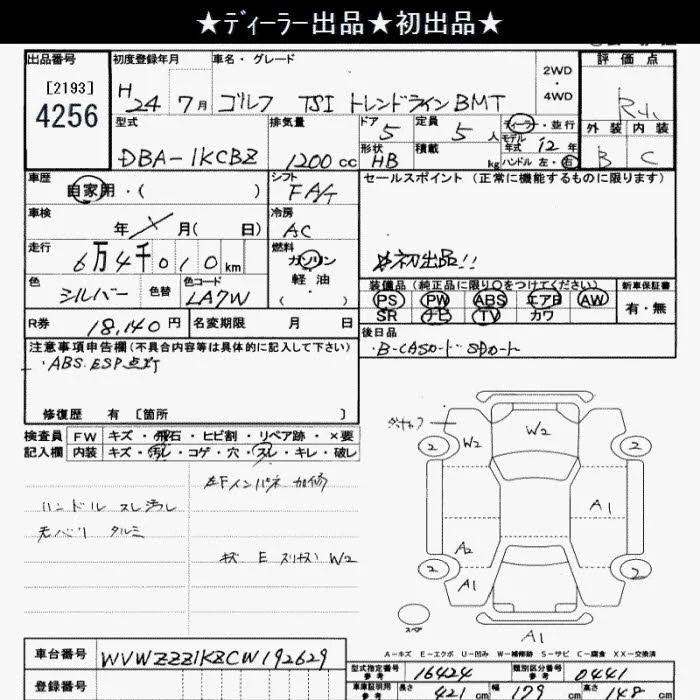 ★ディーラー出品★初出品★
出品番号
[2193]
4256
初度登録年月
H 24 7月
車名・グレード
ゴルフ TSI トレンドラインBMT
2WD
・
4WD
評価点
R
外装 内装
B C
型式
DBA-1KCBZ
排気量
1200cc
ドア 5
形状 HB
定員 5人
積載 kg
ディーラー・並行
モデル年式 12年
ハンドル 左・右
車歴
自家用・( )
シフト
FA/T
セールスポイント (正常に機能するものに限ります)
初出品!!
車検
年 月( 日)
冷房
AC
走行
6万4千010km
燃料
ガソリン
軽油
( ・ )
色
シルバー
色替
色コード
LA7W
装備品(純正品に限り○をつけてください)
PS PW ABS エアB AW
SR ナビ TV カワ
新車保証書
有・無
R券
18,140円
名変期限 月 日
後日品
・B-CASカード SDカード
注意事項申告欄(不具合内容等は具体的に記入して下さい)
・ABS.ESP点灯
修復歴 有 [箇所 ]
検査員記入欄
FW キズ・飛石・ヒビ割・リペア跡・×要
内装 キズ・汚レ・コゲ・穴・スレ・キレ・破レ
左Fインパネ加修
ハンドル スレ汚レ
天バリ タルミ
W2
W2
W2
2
2
A1
A2
A1
2
2
スペア
A1
A-キズ E-エクボ U-凹み W-補修跡 S-サビ C-腐食 XX-交換済
車台番号
WVWZZZ1KZCW192629
登録番号
型式指定番号
参考
16424
類別区分番号
参考
0441
車庫証明用
参考
長さ 421cm
幅 179cm
高さ 148cm